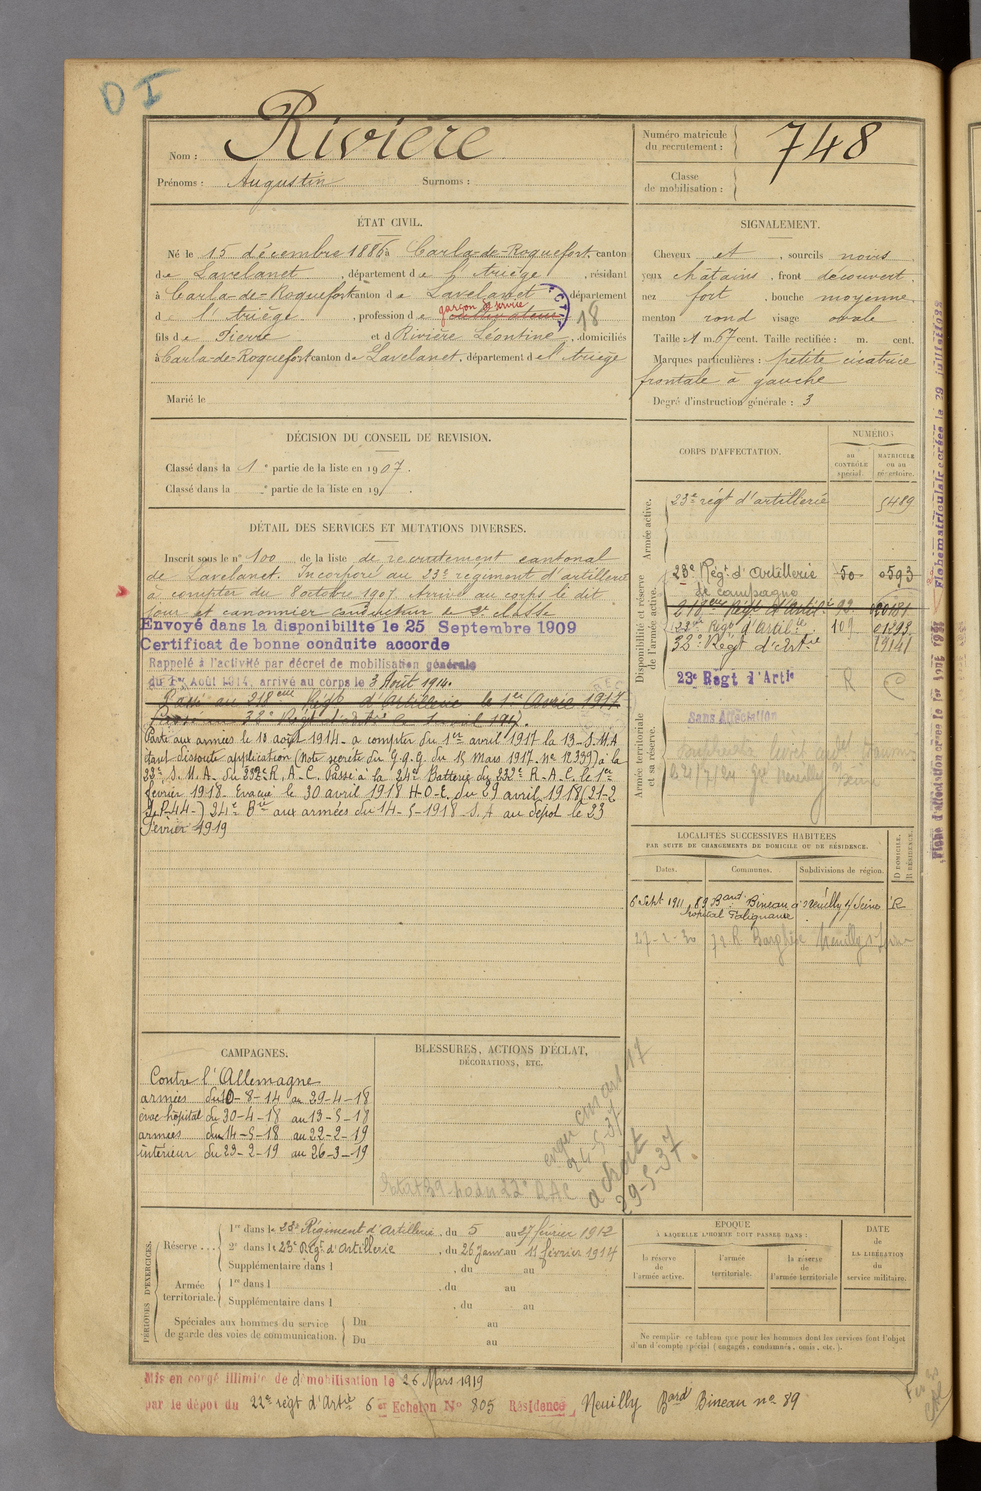 D I
Nom : Rivière
Prénoms : Augustin Surnoms :
Numéro matricule du recrutement : 748
Classe de mobilisation :
ÉTAT CIVIL.
Né le 15 décembre 1886 à Carla-de-Roquefort, canton
de Lavelanet, département de l'Ariège, résidant
à Carla-de-Roquefort canton de Lavelanet département
d l'Ariège, profession de garçon de service cultivateur 18
fils de Pierre et d Rivière Léontine, domiciliés
à Carla-de-Roquefort canton de Lavelanet, département de l'Ariège
Marié le
SIGNALEMENT.
Cheveux et, sourcils noirs
yeux châtains, front découvert
nez fort, bouche moyenne
menton rond visage ovale
Taille : 1 m. 67 cent. Taille rectifiée : m. cent.
Marques particulières : petite cicatrice
frontale à gauche
Degré d'instruction générale : 3
DÉCISION DU CONSEIL DE REVISION.
Classé dans la 1e partie de la liste en 1907.
Classé dans la e partie de la liste en 19 .
DÉTAIL DES SERVICES ET MUTATIONS DIVERSES.
Inscrit sous le n° 100 de la liste de recrutement cantonal
de Lavelanet. Incorporé au 23e régiment d'artillerie
à compter du 8 octobre 1907. Arrivé au corps le dit
jour et canonnier conducteur de 2e classe
Envoyé dans la disponibilite le 25 Septembre 1909
Certificat de bonne conduite accorde
Rappelé à l'activité par décret de mobilisation générale
du 1er Août 1914, arrivé au corps le 3 Août 1914.
Passé au 218eme Régt d'Artillerie le 1er Avril 1917
Parti aux armées le 10 août 1914 - a compter du 1er avril 1917 la 13e S.M.A
étant dissoute application (Note secrète du G.Q.G. du 15 Mars 1917. No 12339) à la
33e S.M.A. du 332e R.A.C. Passé à la 24e Batterie du 232e R.A.C. le 1er
février 1918. Evacué le 30 avril 1918 H-O-E. du 29 avril 1918 (31-2
S.P. 44-) 24e Bie aux armées du 14-5-1918. S.A au dépôt le 23
Février 1919
CORPS D'AFFECTATION.
NUMÉROS
au CONTRÔLE spécial.
MATRICULE ou au répertoire.
Armée active.
23e régt d'artillerie 5489
Disponibilité et réserve de l'armée active.
23e Régt d'Artillerie 50 0593
de campagne
218eme Régt d'Artie
23eme Regt d'Artillie 109 01293
33e Régt d'Artie
23e Regt d'Artie R C
Armée territoriale et sa réserve.
Sans Affectation
LOCALITÉS SUCCESSIVES HABITÉES
PAR SUITE DE CHANGEMENTS DE DOMICILE OU DE RÉSIDENCE.
Dates. Communes. Subdivisions de région. D DOMICILE. R RÉSIDENCE.
6 Sept 1911 89 Bard Bineau à Neuilly s/ Seine R
27-2-30 Neuilly s/ Seine
CAMPAGNES.
Contre l'Allemagne
armées du 10-8-14 au 29-4-18
évac hôpital du 30-4-18 au 13-5-18
armées du 14-5-18 au 22-2-19
intérieur du 23-2-19 au 26-3-19
BLESSURES, ACTIONS D'ÉCLAT,
DÉCORATIONS, ETC.
29-5-37.
PÉRIODES D'EXERCICES.
Réserve . . . 1re dans le 23e Régiment d'Artillerie, du 5 au 27 février 1912
2e dans le 23e Régt d'Artillerie, du 26 janv au 11 février 1914
Supplémentaire dans l , du au
Armée territoriale. 1re dans l , du au
Supplémentaire dans l , du au
Spéciales aux hommes du service de garde des voies de communication. Du au
Du au
ÉPOQUE
À LAQUELLE L'HOMME DOIT PASSER DANS :
la réserve de l'armée active.
l'armée territoriale.
la réserve de l'armée territoriale
DATE de LA LIBÉRATION du service militaire.
Ne remplir ce tableau que pour les hommes dont les services font l'objet
d'un décompte spécial (engagés, condamnés, omis, etc.).
Mis en congé illimité de démobilisation le 26 Mars 1919
par le dépôt du 22e régt d'Artie 6e Echelon No 805 Résidence Neuilly Bard Bineau no 89